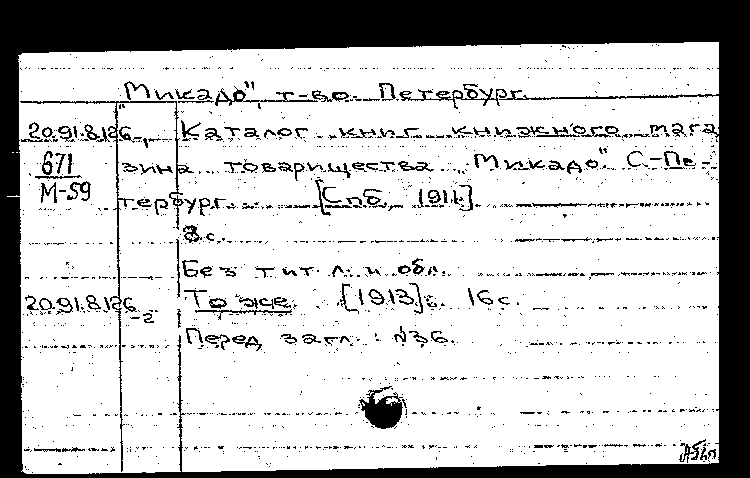 "Микадо", т-во. Петербург.
20.91.8.126-1 Каталог книг книжного мага
671 зина товарищества „Микадо". С-Пе-
М-59 тербург. [Спб, 1911.]
8 с.
Без тит. л. и обл.
20.91.8.126-2 То же. [1913]. 16 с.
Перед загл.: №36.